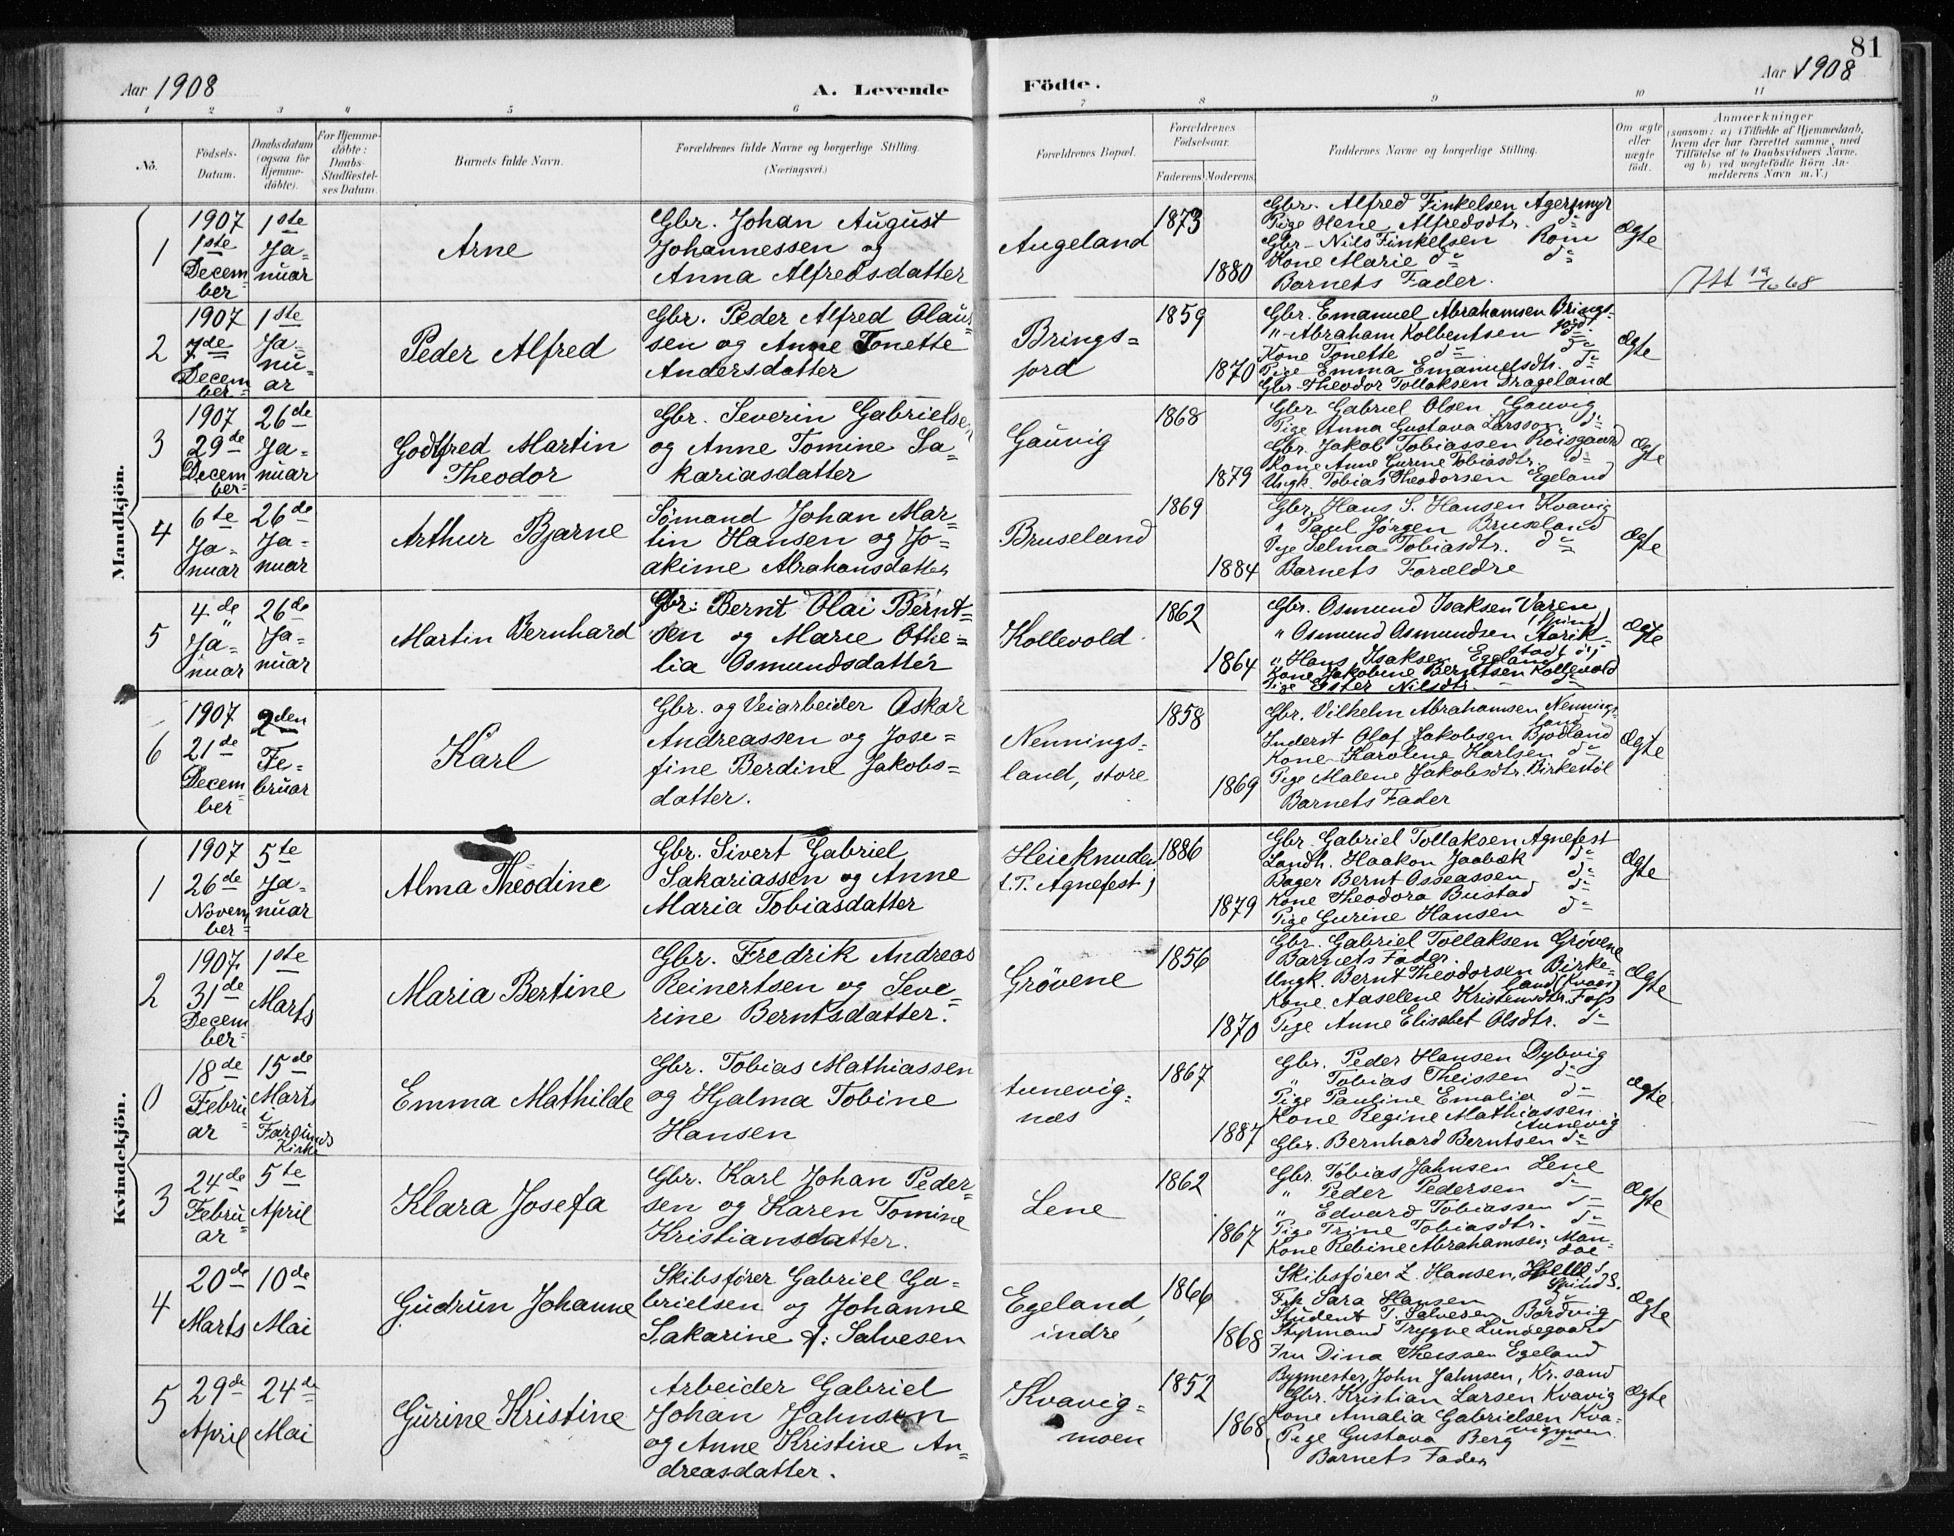 81
Aar 1908
A. Levende
Födte.
Aar 1908
1 2 3 4 5 6 7 8 9 10 11
No.
Födsels-
Datum.
Daabsdatum
(ogsaa for
Hjemme-
döbte).
For Hjemme-
döbte:
Daabs-
Stadfæstel-
ses Datum.
Barnets fulde Navn.
Forældrenes fulde Navne og borgerlige Stilling.
(Næringsvei.)
Forældrenes Bopæl.
Forældrenes
Födselsaar.
Faderens. Moderens.
Faddernes Navne og borgerlige Stilling.
Om ægte
eller
uægte
födt.
Anmærkninger
(saasom: a) i Tilfælde af Hjemmedaab,
hvem der har forrettet samme, med
Tilföielse af to Daabsvidners Navne,
og b) ved uægtefödte Börn An-
melderens Navn m. V.)
Mandkjön.
1
1907
1ste
Decem
ber
1ste
Ja-
nuar
Arne
Gbr. Johan August
Johannessen og
Anna Alfredsdatter
Augeland
1873
1880
Gbr. Alfred Finkelsen Agermyr
Pige Alfredsdtr. do
Gbr. Nils Finkelsen Rom
Kone Marie do do
Barnets Fader.
Ægte
2
1907
7de
Decem
ber
1ste
Ja-
nu-
ar
Peder Alfred
Gbr. Peder Alfred Olaus-
sen og Anne Tonette
Andersdatter
Brings-
jord
1859
1870
Gbr. Emanuel Abrahamsen Brings-
jord
" Abraham Kolbentsen do
Kone Tonette do do
Pige Emma Emanuelsdtr. do
Gbr. Theodor Tollaksen Drageland
Ægte
3
1907
29de
Decem
ber
26de
Ja-
nuar
Godtfred Martin
Theodor
Gbr. Severin Gabrielsen
og Anne Tomine Sa-
kariasdatter
Gauvig
1868
1879
Gbr. Gabriel Olsen Gauvig
Pige Anna Gustava Larsson do
Gbr. Jakob Tobiassen Roisgaard
Kone Anne Gurine Tobiasdtr. do
Ungk. Tobias Theodorsen Egeland
Ægte
4
6te
Ja-
nuar
26de
Ja-
nuar
Arthur Bjarne
Sømand Johan Mar-
tin Hansen og Jo-
akime Abrahamsdatter
Bruseland
1869
1884
Gbr. Hans S. Hansen Kvavig
" Paul Jørgen Bruseland
Pige Selma Tobiasdtr. do
Barnets Forældre
Ægte
5
4de
Ja-
nuar
26de
Ja-
nuar
Martin Bernhard
Gbr. Bernt Olai Bernt-
sen og Marie Othe-
lia Osmundsdatter
Kollevold
1862
1864
Gbr. Osmund Isaksen Varen
(Spind)
" Osmund Osmundsen
" Hans Isaksen Egeland
Kone Jakobine Berntsen Kollevold
Pige Ester Nilsdtr.
Ægte
6
1907
21de
Decem
ber
2den
Fe-
bruar
Karl
Gbr. og Veiarbeider Oskar
Andreassen og Jose-
fine Berdine Jakobs-
datter.
Nennings-
land, store
1858
1869
Gbr. Vilhelm Abrahamsen Nennings-
land
Inderst Olaf Jakobsen Bjodland
Kone Karoline Karlsen do
Pige Malene Jakobsdtr. Birkestöl
Barnets Fader
Ægte
Kvindekjön.
1
1907
26de
Novem
ber
5te
Ja-
nuar
Alma Theodine
Gbr. Sivert Gabriel
Sakariassen og Anne
Maria Tobiasdatter
Heieknuden
(t.T. Agnefest)
1886
1879
Gbr. Gabriel Tollaksen Agnefest
Landh. Haakon Jaabæk do
Bager Bernt Osseassen do
Kone Theodora Bustad do
Pige Gurine Hansen do
Ægte
2
1907
31de
Decem
ber
1ste
Marts
Maria Bertine
Gbr. Fredrik Andreas
Reinertsen og Seve-
rine Berntsdatter.
Grövene
1856
1870
Gbr. Gabriel Tollaksen Grövene
Barnets Fader
Ungk. Bernt Theodorsen Birke-
land (Kvaas)
Kone Aaselene Kristensdtr. Foss
Pige Anne Elisabet Olsdtr. do
Ægte
0
18de
Febru
ar
15de
Marts
i
Farsunds
Kirke
Emma Mathilde
Gbr. Tobias Mathiassen
og Hjalma Tobine
Hansen
Aunevig-
næs
1867
1887
Gbr. Peder Hansen Dybvig
" Tobias Theissen do
Pige Pauline Emalia do
Kone Regine Mathiassen
Aunevig
Gbr. Bernhard Berntsen do
Ægte
3
24de
Febru-
ar
5te
April
Klara Josefa
Gbr. Karl Johan Peder-
sen og Karen Tomine
Kristiansdatter.
Lene
1862
1867
Gbr. Tobias Jahnsen Lene
" Peder Pedersen do
" Edvard Tobiassen do
Pige Trine Tobiasdtr. do
Kone Rebine Abrahamsen, Man-
dae
Ægte
4
20de
Marts
10de
Mai
Gudrun Johanne
Skibsfører Gabriel Ga-
brielsen og Johanne
Sakarine f: Salvesen
Egeland,
indre
1866
1868
Skibsfører L. Hansen,
Spind S.
Frk Sara Hansen do
Student T. Salvesen Bordvig
Styrmand Trygve Lundegaard
Fru Dina Theissen Egeland
Ægte
5
29de
April
24de
Mai
Gurine Kristine
Arbeider Gabriel
Johan Jahnsen
og Anne Kristine An-
dreasdatter.
Kvavig-
moen
1852
1868
Bygmester, John Jahnsen, Kr. sand
Gbr. Kristian Larsen Kvavig
Kone Amalia Gabrielsen Kva-
vigmoen
Pige Gustava Berg do
Barnets Fader
Ægte